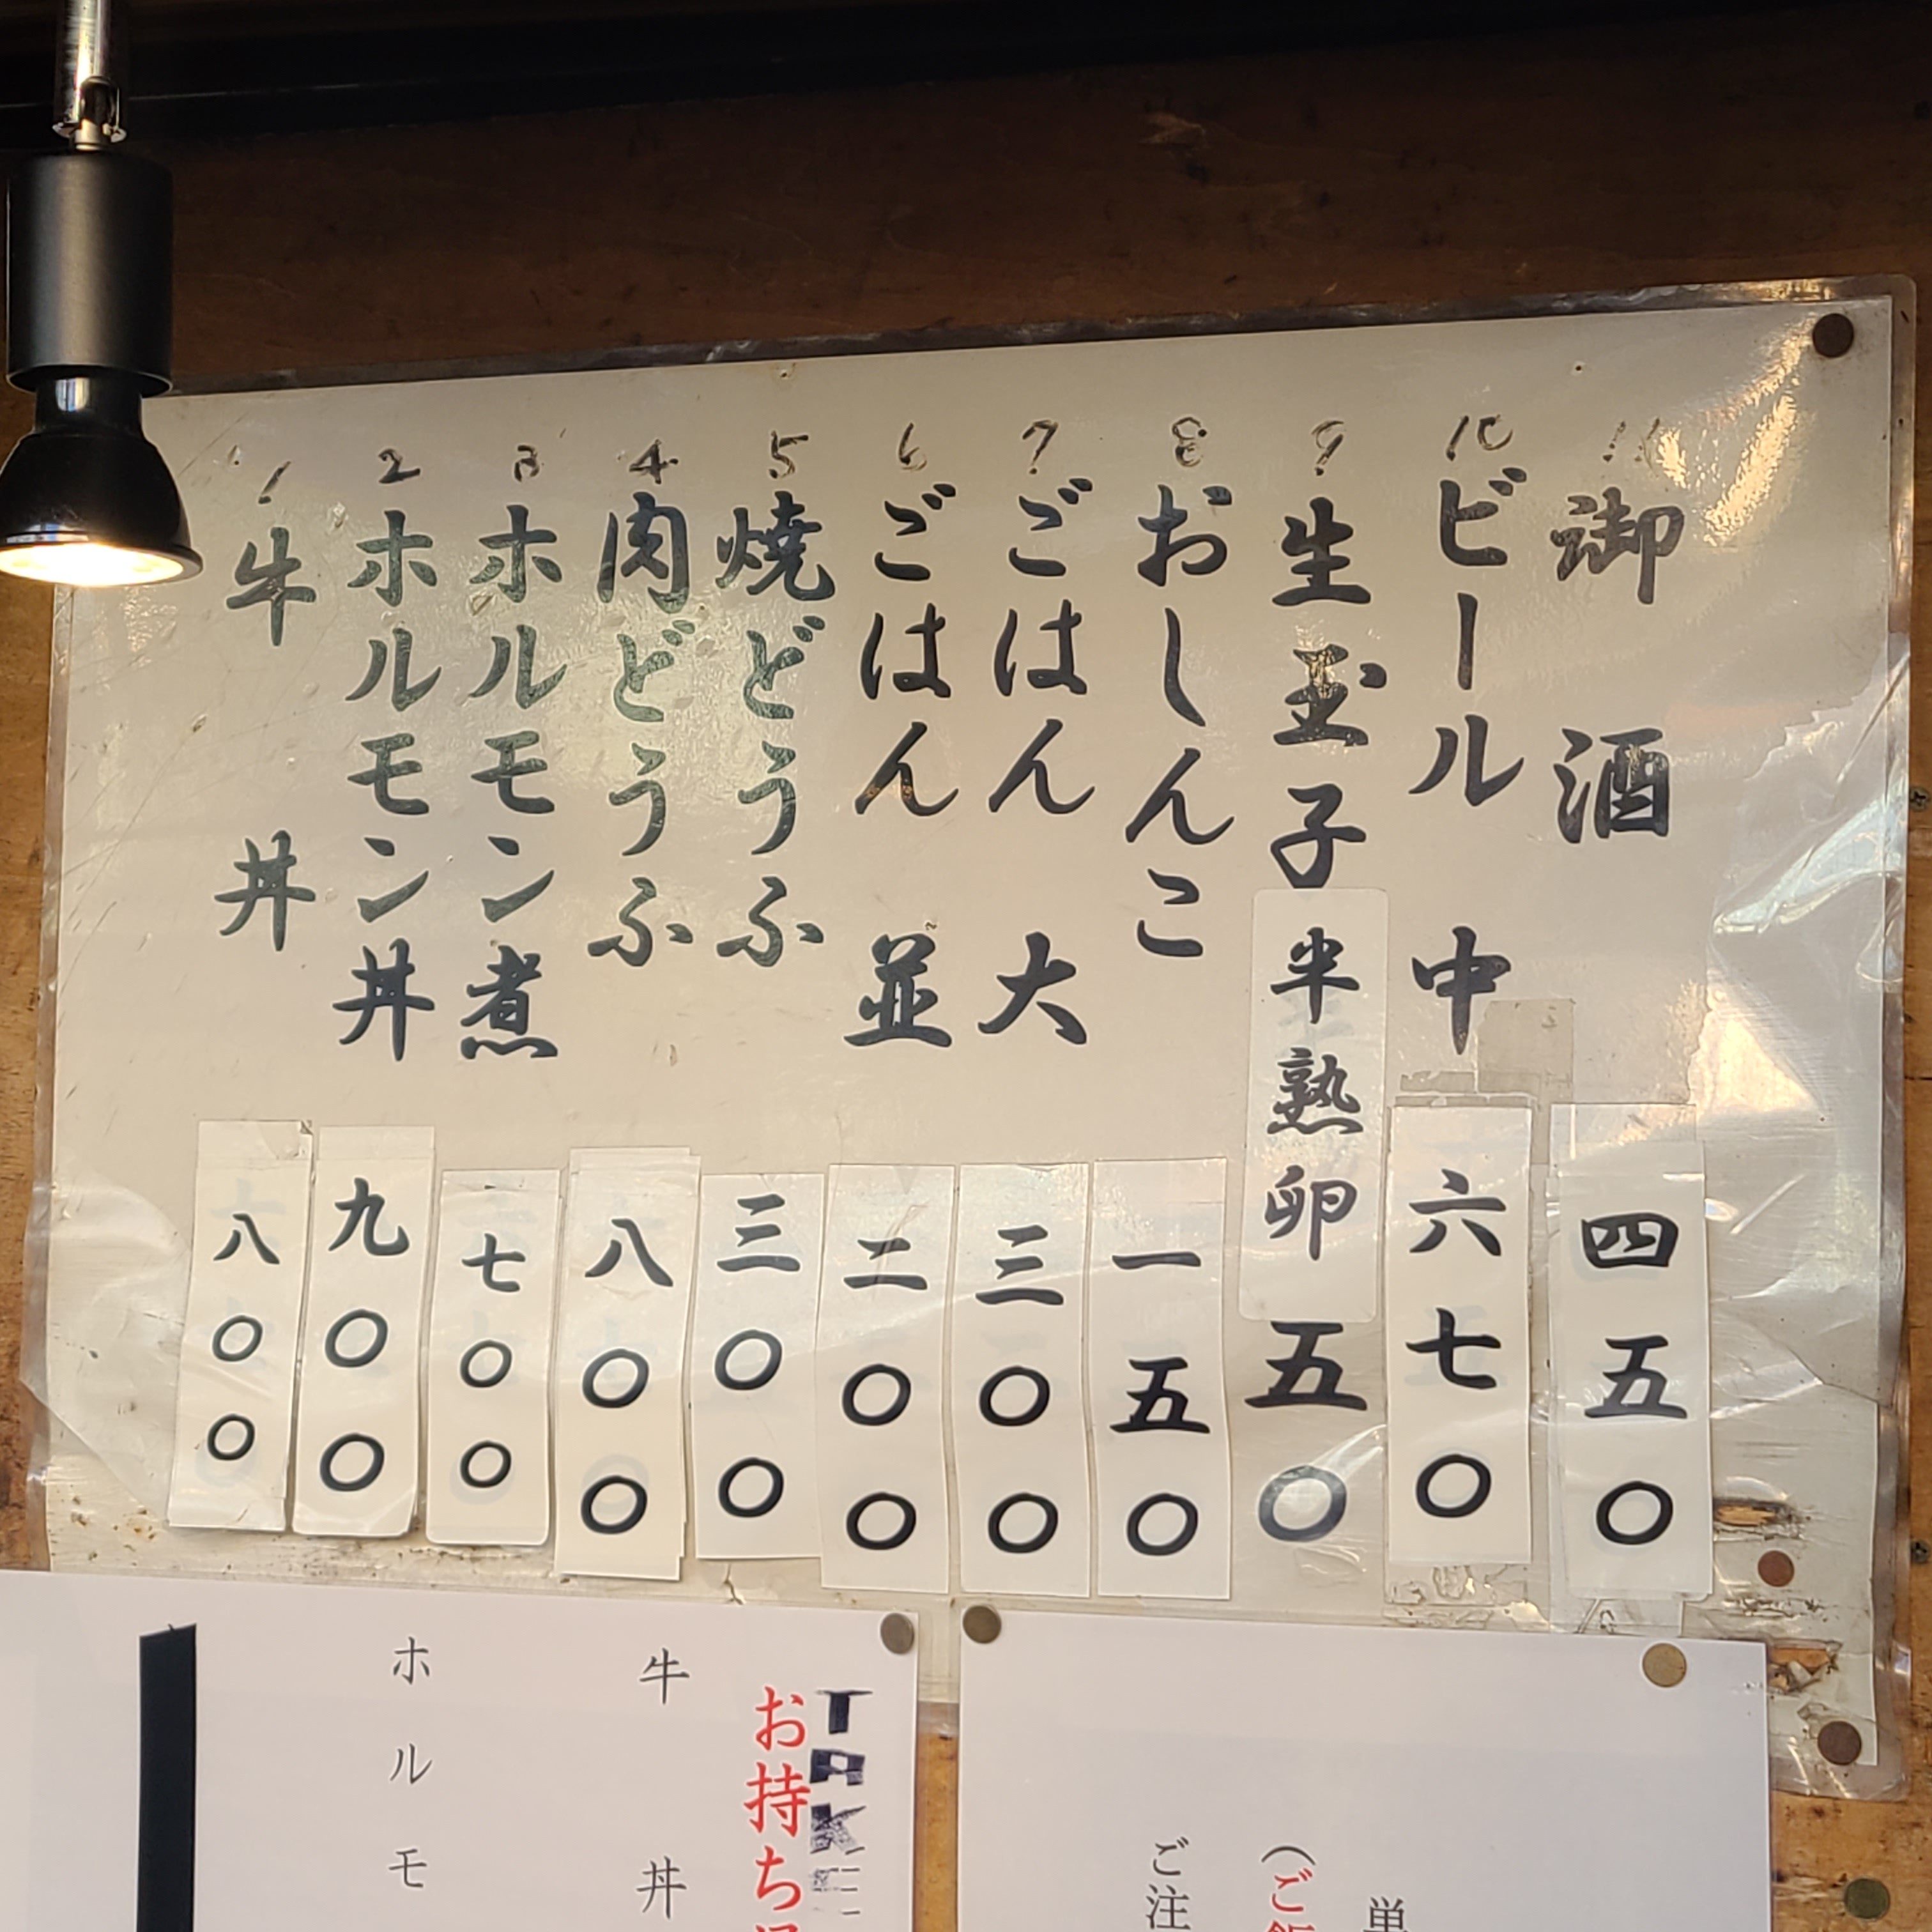 11 御酒 四五〇
10 ビール 中 六七〇
9 生玉子 半熟卵 五〇
8 おしんこ 一五〇
7 ごはん 大 三〇〇
6 ごはん 並 二〇〇
5 焼どうふ 三〇〇
4 肉どうふ 八〇〇
3 ホルモン煮 七〇〇
2 ホルモン丼 九〇〇
1 牛丼 八〇〇
単
(ご飯
ご注
TAKE
お持ち
牛丼
ホルモ